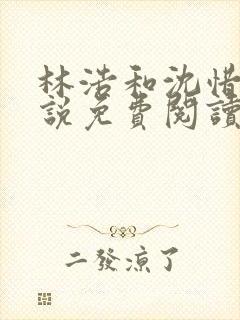 林浩和沈惜
說免費閱讀
二發涼了